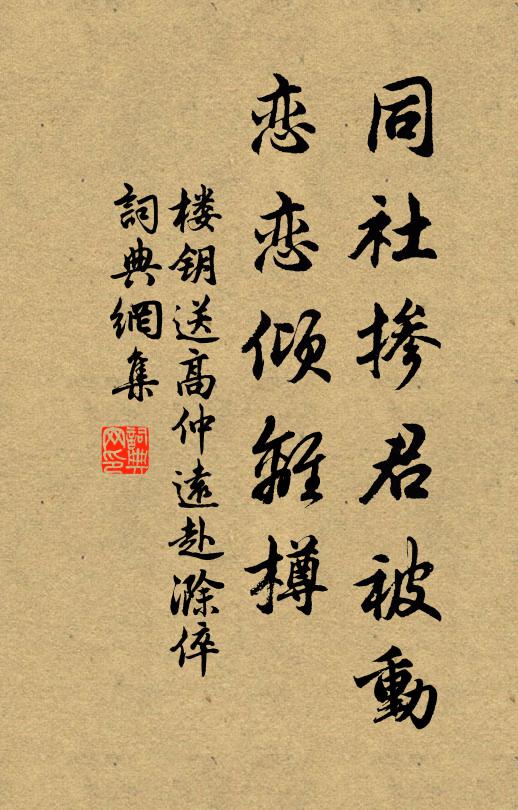 同社掺君被動
恋恋倾離樽
楼钥送高仲遠赴滁倅
詞典網集
詞典网印